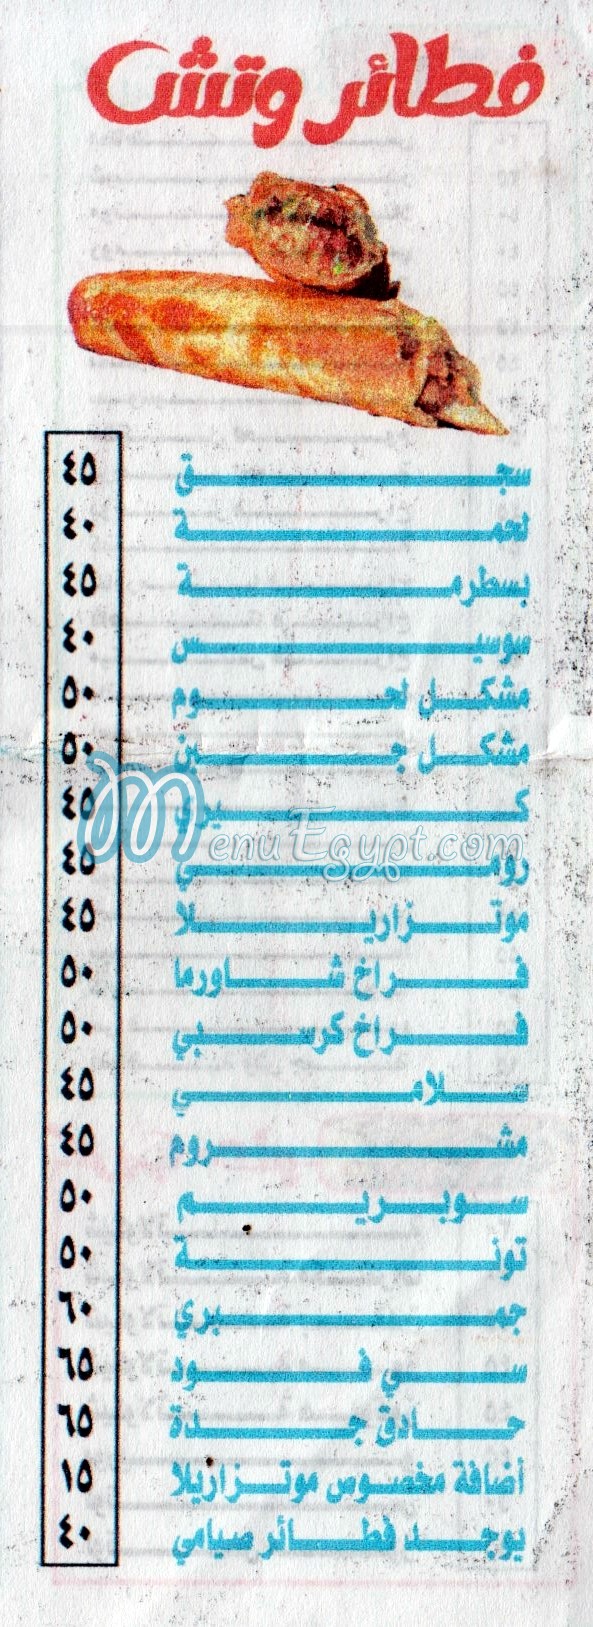 فطائر وتش
سجق ٤٥
لحمة ٤٠
بسطرمة ٤٥
سوسيس ٤٠
مشكل لحوم ٥٠
مشكل جبن ٥٠
كيري ٤٥
رومي ٤٥
موتزاريلا ٤٥
فراخ شاورما ٥٠
فراخ كرسبي ٥٠
سلامي ٤٥
مشروم ٤٥
سوبريم ٥٠
تونة ٥٠
جمبري ٦٠
سي فود ٦٥
حادق جدة ٦٥
أضافة مخصوص موتزاريلا ١٥
يوجد فطائر صيامي ٤٠
MenuEgypt.com